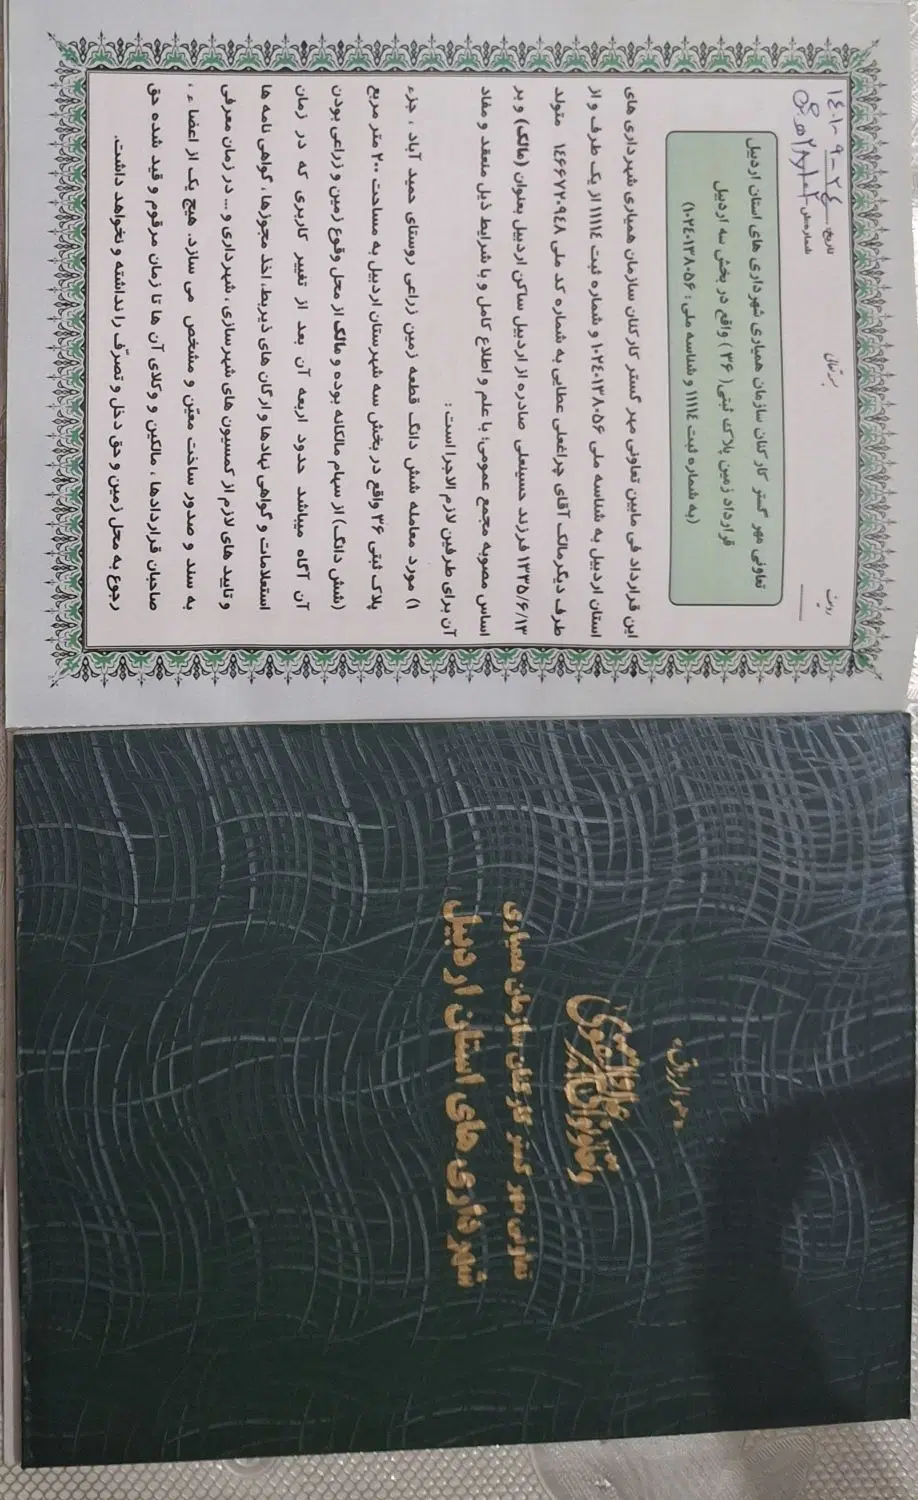 بسمه تعالی
تاریخ: ۱۴۰۱-۹-۲۴
شماره مسلسل
رونوشت
تعاونی مهر گستر کارکنان سازمان همیاری شهرداری های استان اردبیل
قرارداد زمین پلاک ثبتی( ۳۶ ) واقع در بخش سه اردبیل
(به شماره ثبت ۱۱۱۱۴ و شناسه ملی: ۱۰۲۴۰۱۳۸۰۵۶)
این قرارداد فی مابین تعاونی مهر گستر کارکنان سازمان همیاری شهرداری های
استان اردبیل به شناسه ملی ۱۰۲۴۰۱۳۸۰۵۶ و شماره ثبت ۱۱۱۱۴ از یک طرف و از
طرف دیگر مالک آقای چراغعلی عطایی به شماره کد ملی ۱۴۶۶۷۲۰۹۴۸ متولد
۱۳۳۵/۶/۱۳ فرزند حسینعلی صادره از اردبیل ساکن اردبیل بعنوان (مالک) و بر
اساس مصوبه مجمع عمومی؛ با علم و اطلاع کامل و با شرایط ذیل منعقد و مفاد
آن برای طرفین لازم الاجرا است:
۱) مورد معامله شش دانگ قطعه زمین زراعی روستای حمید آباد ، جزء
پلاک ثبتی ۳۶ واقع در بخش سه شهرستان اردبیل به مساحت ۲۰۰ متر مربع
(شش دانگ) از سهام مالکانه بوده و مالک از محل وقوع زمین و زراعی بودن
آن آگاه میباشد حدود اربعه آن بعد از تغییر کاربری که در زمان
استعلامات و گواهی نهادها و ارگان های ذیربط، اخذ مجوزها، گواهی نامه ها
و تایید های لازم از کمسیون های شهرسازی ، شهرداری و... در زمان معرفی
به سند و صدور ساخت معیّن و مشخص می سازد. هیچ یک از اعضا ء ،
صاحبان قراردادها ، مالکین و وکلای آن ها تا زمان مرقوم و قید شده حق
رجوع به محل زمین و حق دخل و تصرّف را نداشته و نخواهد داشت.
«هوالرزاق»
وتعاونوا علی البر والتقوی
تعاونی مهر گستر کارکنان سازمان همیاری
شهرداری های استان اردبیل